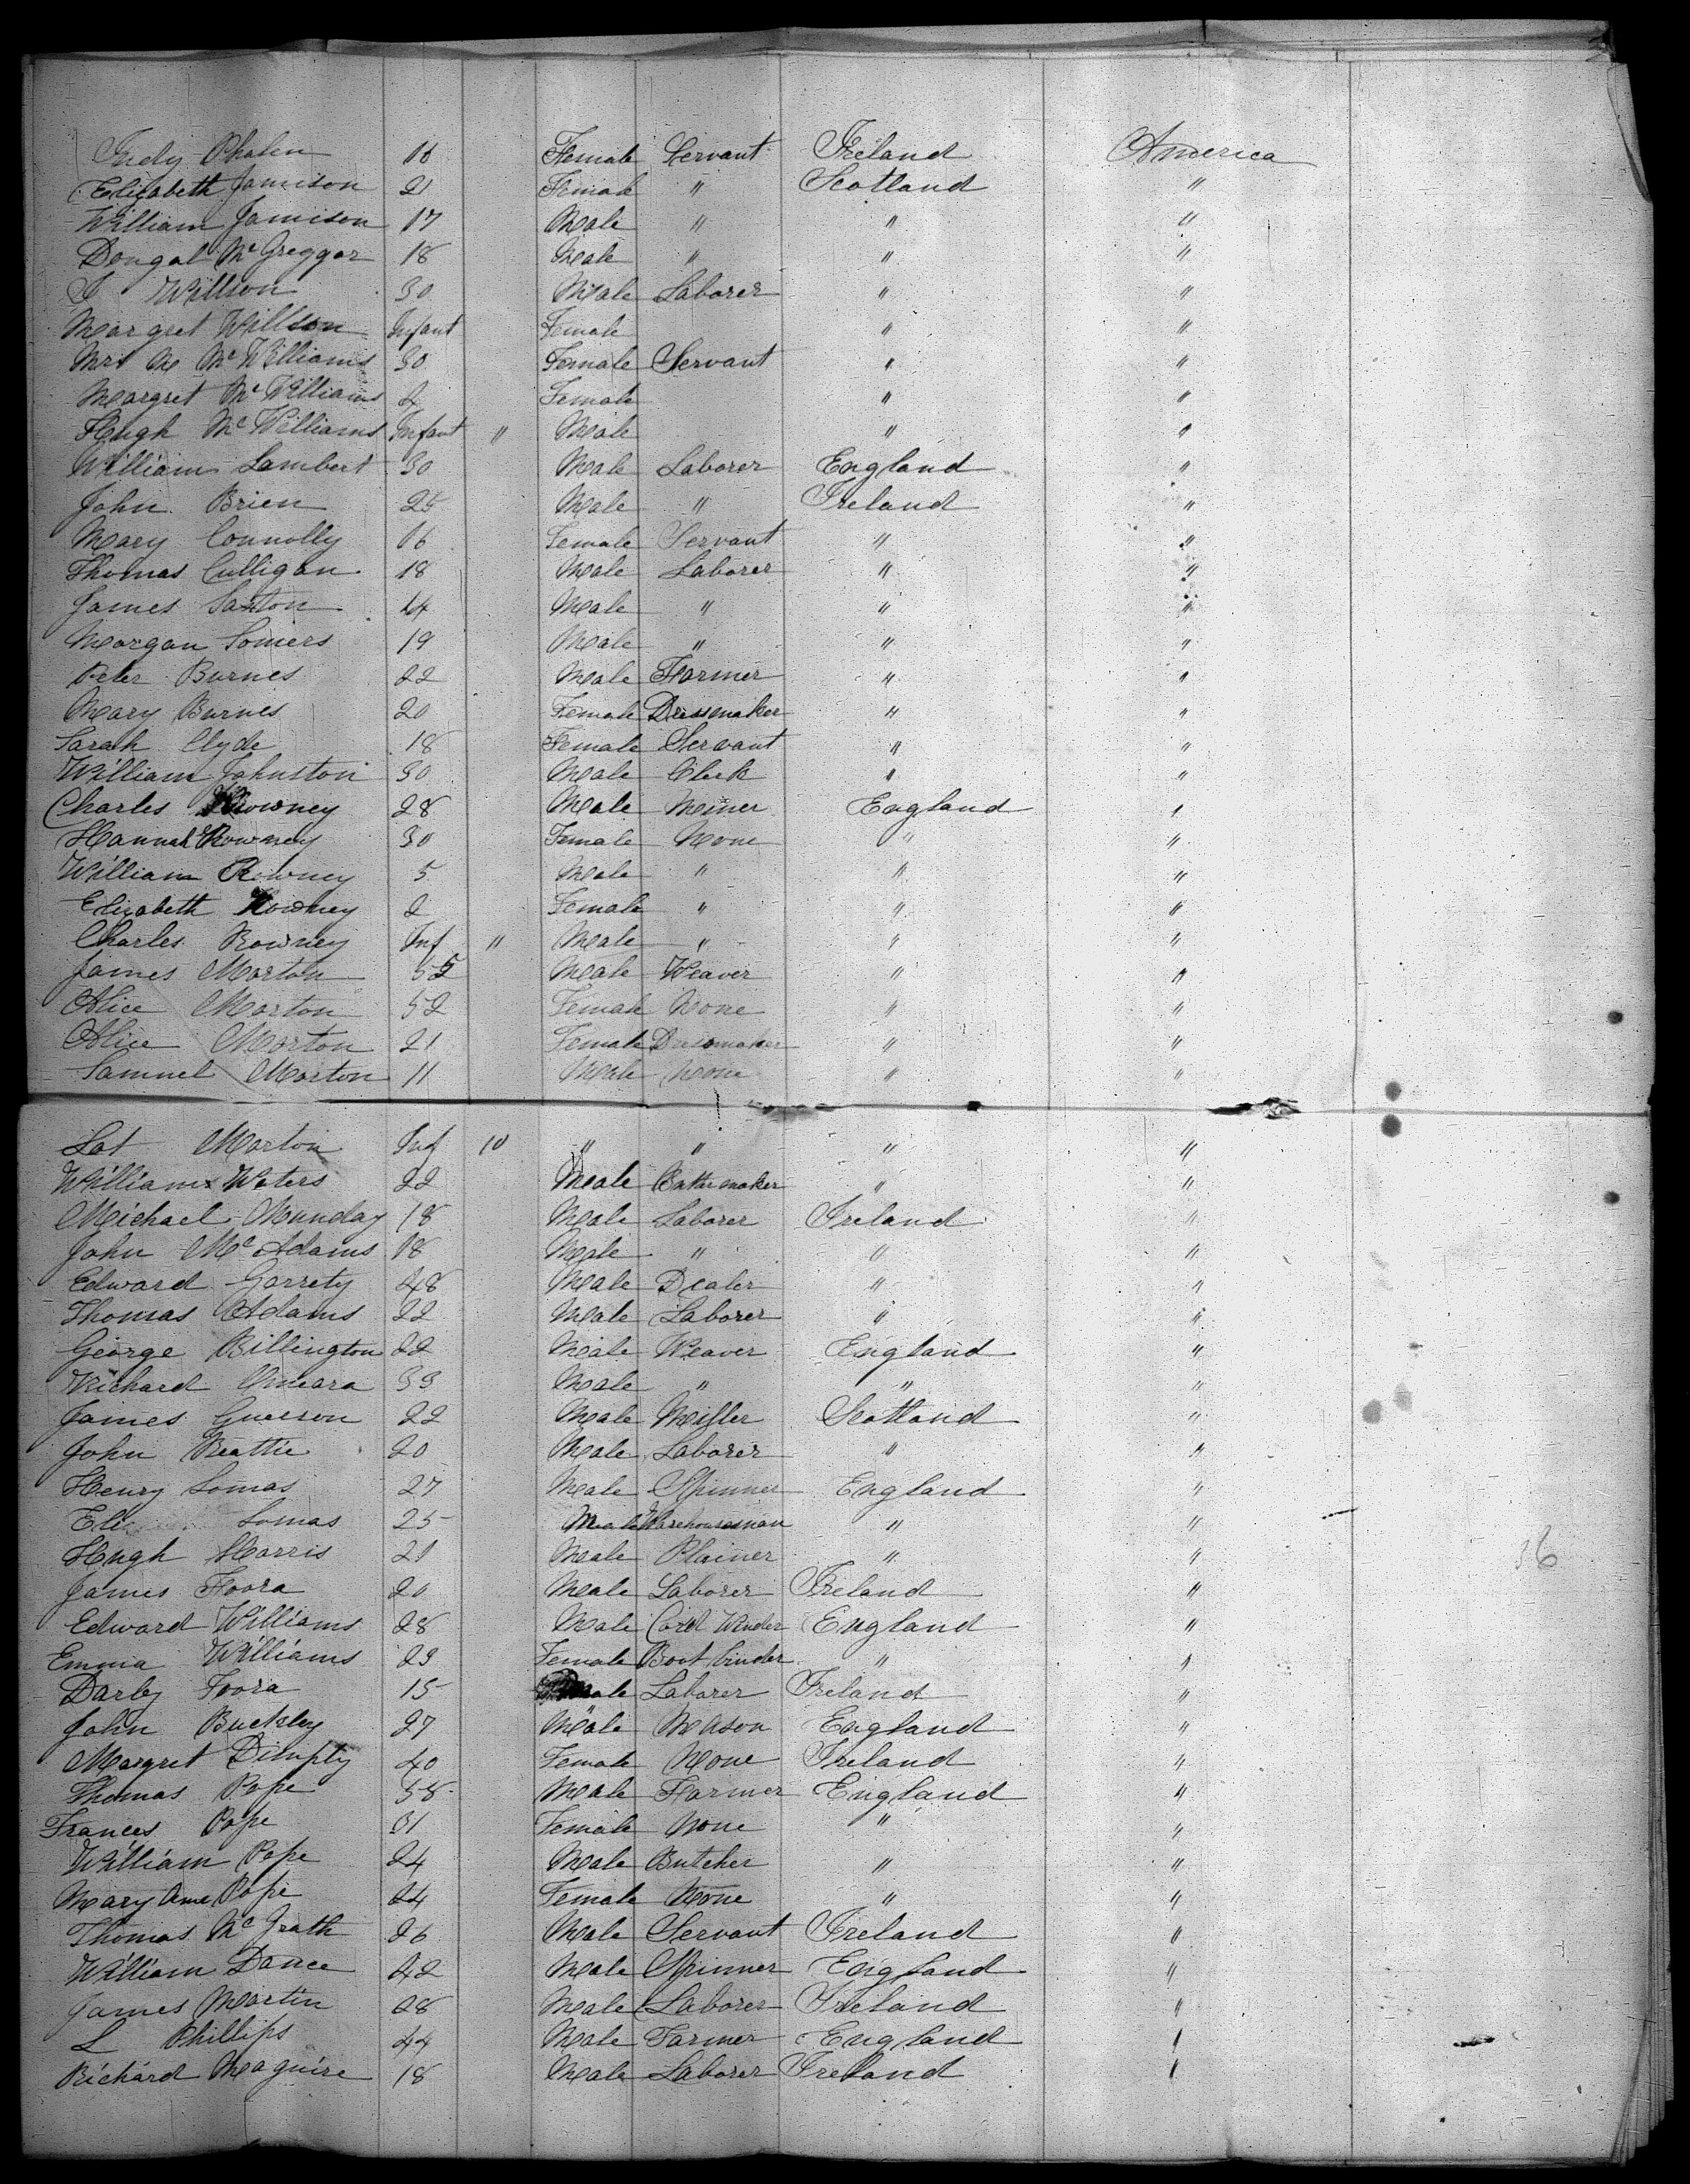 Judy Phalen 18 Female Servant Ireland America
Elizabeth Jamison 21 Female " Scotland "
William Jamison 17 Male " " "
Dougal McGreggor 18 Male " " "
J Willson 30 Male Laborer " "
Margret Willson Infant Female " "
Mrs M McWilliams 30 Female Servant " "
Margret McWilliams 2 Female " "
Hugh McWilliams Infant " Male " "
William Lambert 30 Male Laborer England "
John Brien 25 Male " Ireland "
Mary Connolly 16 Female Servant " "
Thomas Culligan 18 Male Laborer " "
James Saxton 24 Male " " "
Morgan Somers 19 Male " " "
Peter Burnes 22 Male Farmer " "
Mary Burnes 20 Female Dressmaker " "
Sarah Clyde 18 Female Servant " "
William Johnston 30 Male Clerk " "
Charles Rowney 28 Male Miner England "
Hannah Rowney 30 Female None " "
William Rowney 5 Male " " "
Elizabeth Rowney 2 Female " " "
Charles Rowney Inf " Male " " "
James Morton 55 Male Weaver " "
Alice Morton 52 Female None " "
Alice Morton 21 Female Dressmaker " "
Samuel Morton 11 Male None " "
Lot Morton Inf 10 " " " "
William Waters 22 Male maker " "
Michael Munday 18 Male Laborer Ireland "
John McAdams 18 Male " " "
Edward Garrety 48 Male Dealer " "
Thomas Adams 22 Male Laborer " "
George Billington 22 Male Weaver England "
Richard Omeara 33 Male " " "
James Guerson 22 Male Miller Scotland "
John Beattie 20 Male Laborer " "
Henry Lomas 27 Male Spinner England "
Eli Lomas 25 Male Warehouseman " "
Hugh Harris 21 Male Plainer " "
James Foora 20 Male Laborer Ireland "
Edward Williams 28 Male Cord Winder England "
Emma Williams 23 Female Boot binder " "
Darby Foora 15 Male Laborer Ireland "
John Buckley 27 Male Mason England "
Margret Dimpty 40 Female None Ireland "
Thomas Pope 58 Male Farmer England "
Frances Pope 51 Female None " "
William Pope 24 Male Butcher " "
Mary Ame Pope 24 Female None " "
Thomas McGrath 26 Male Servant Ireland "
William Dance 42 Male Spinner England "
James Martin 28 Male Laborer Ireland "
L Phillips 44 Male Farmer England "
Richard Maguire 18 Male Laborer Ireland "